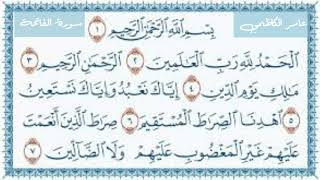 سورة الفاتحة
عامر الكاظمي
بِسْمِ اللَّهِ الرَّحْمَٰنِ الرَّحِيمِ ١
الْحَمْدُ لِلَّهِ رَبِّ الْعَالَمِينَ ٢ الرَّحْمَٰنِ الرَّحِيمِ ٣
مَالِكِ يَوْمِ الدِّينِ ٤ إِيَّاكَ نَعْبُدُ وَإِيَّاكَ نَسْتَعِينُ
٥ اهْدِنَا الصِّرَاطَ الْمُسْتَقِيمَ ٦ صِرَاطَ الَّذِينَ أَنْعَمْتَ
عَلَيْهِمْ غَيْرِ الْمَغْضُوبِ عَلَيْهِمْ وَلَا الضَّالِّينَ ٧